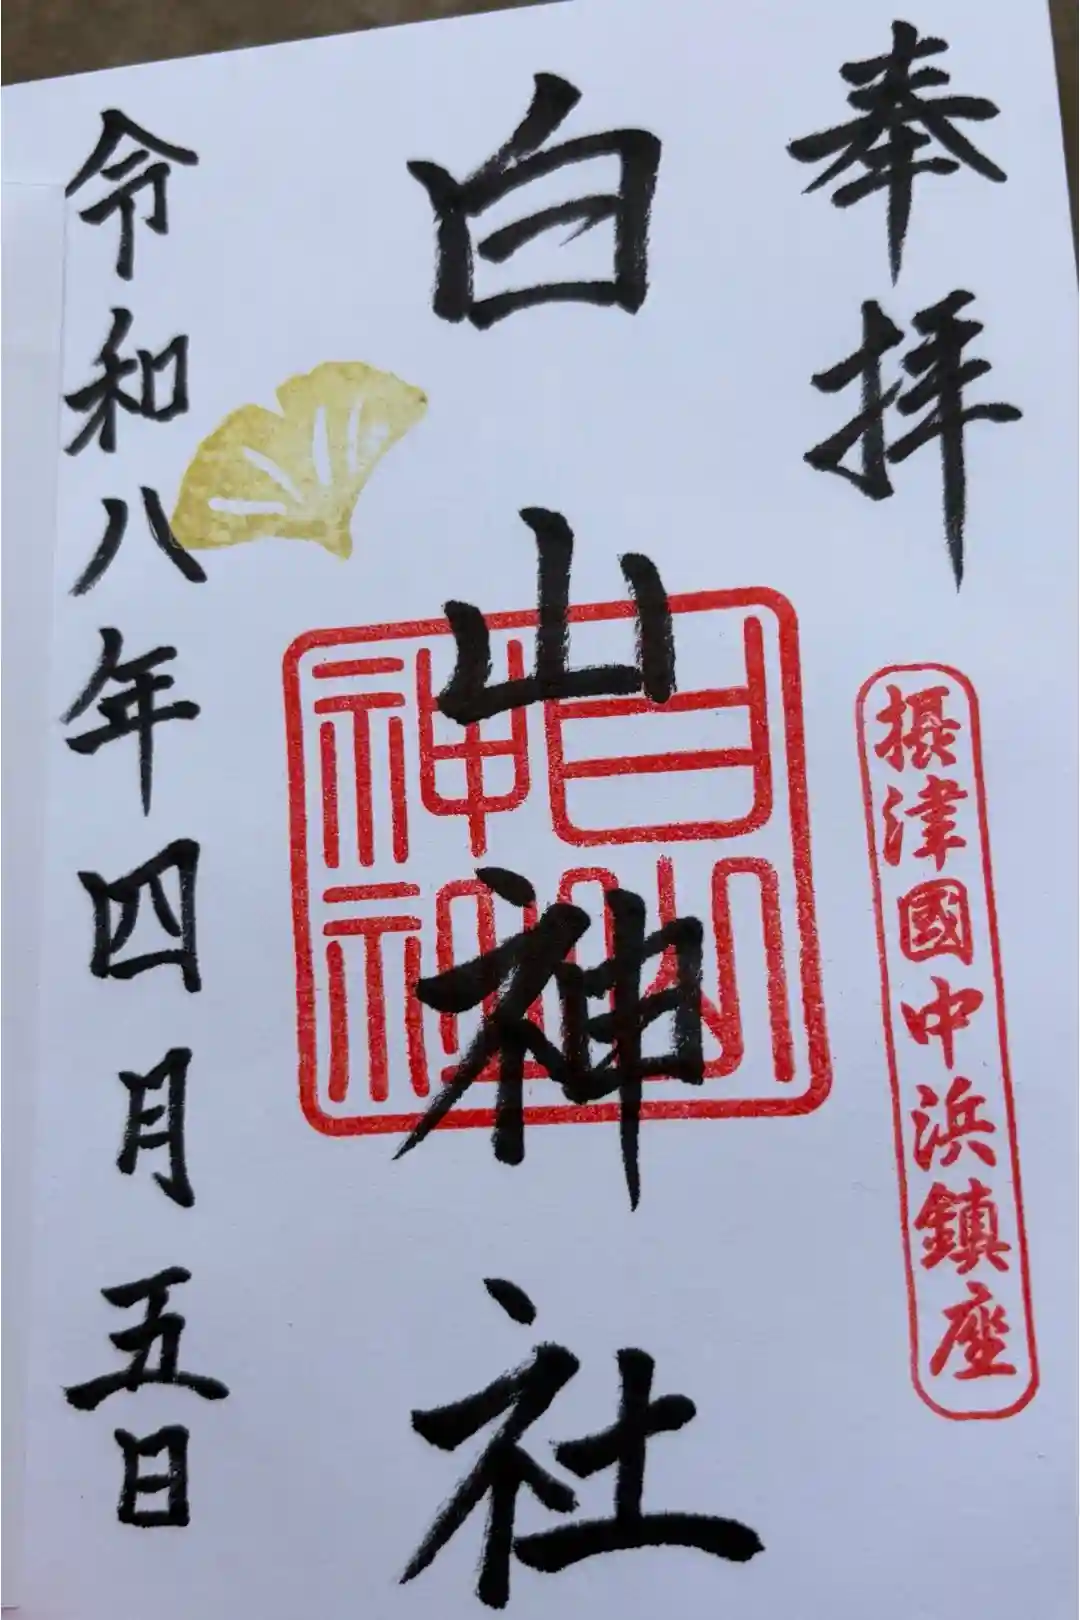 奉拝
摂津國中浜鎮座
白山神社
白山神社
令和八年四月五日